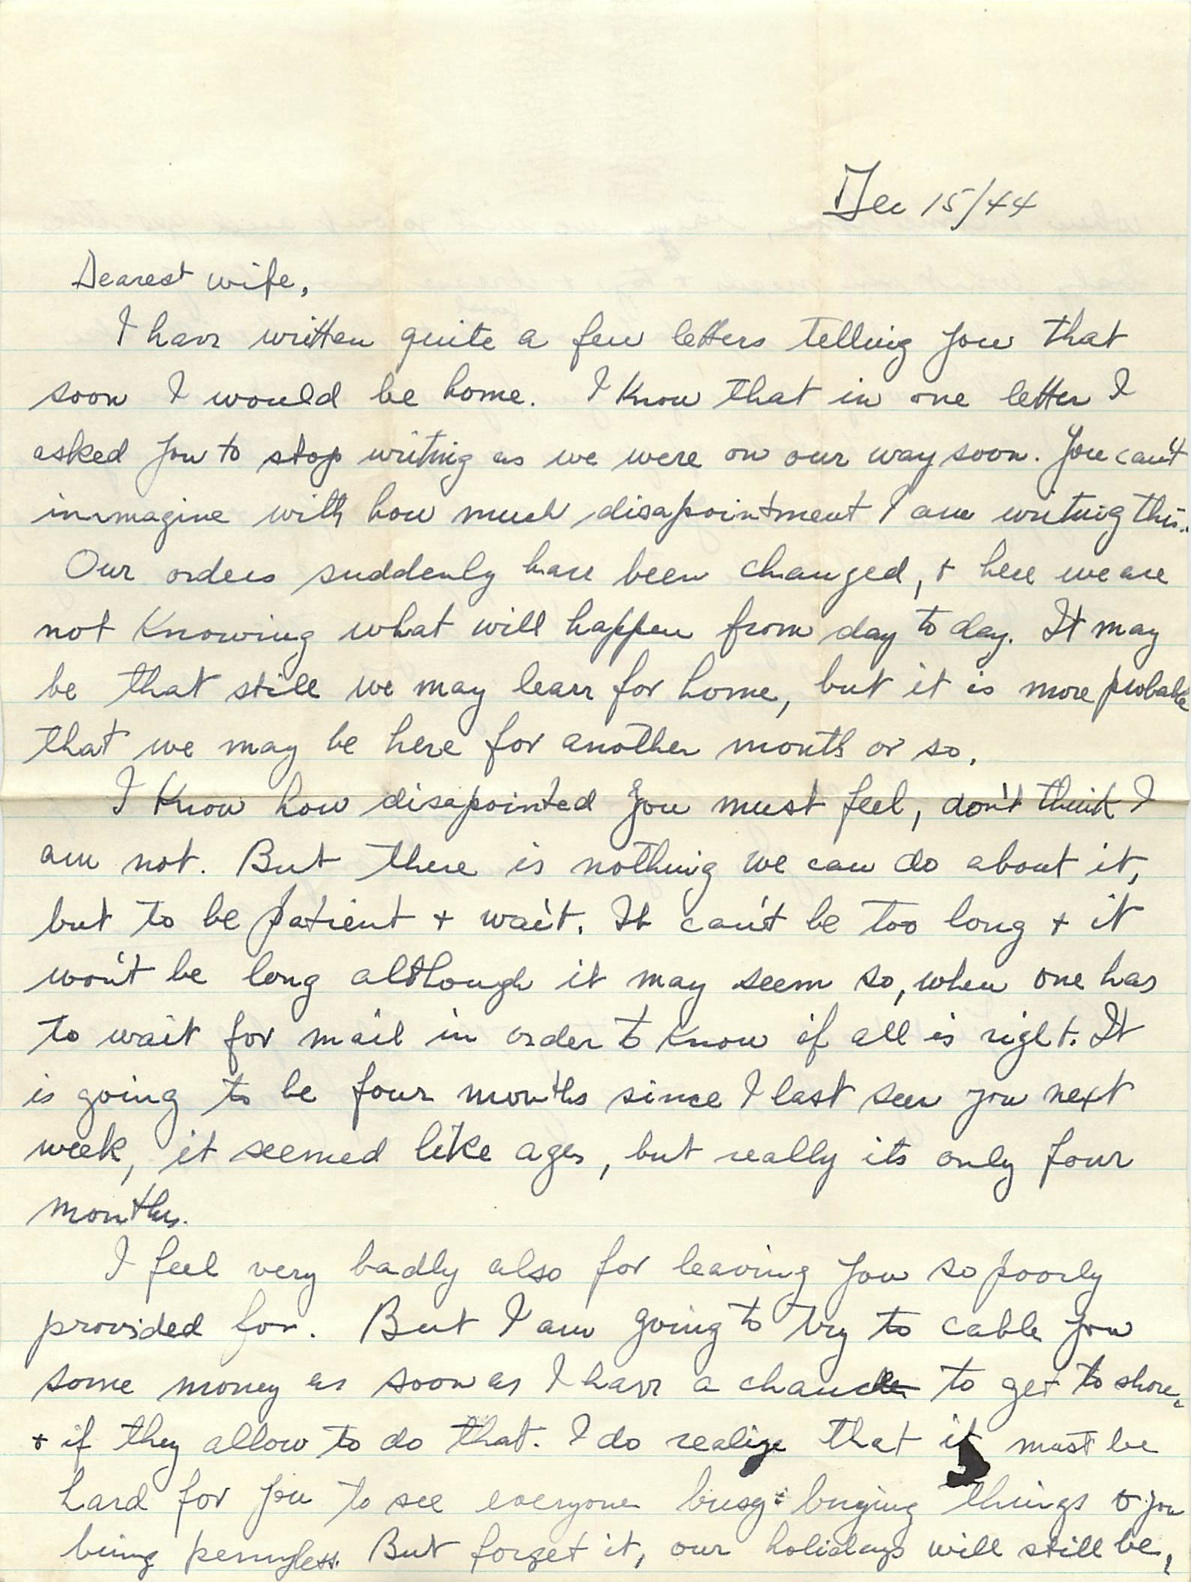 Dec 15/44
Dearest wife,
I have written quite a few letters telling you that
soon I would be home. I know that in one letter I
asked you to stop writing as we were on our way soon. You can't
immagine with how much disapointment I am writing this.
Our orders suddenly have been changed, + here we are
not knowing what will happen from day to day. It may
be that still we may leave for home, but it is more probable
that we may be here for another month or so.
I know how disapointed you must feel, don't think I
am not. But there is nothing we can do about it,
but to be patient + wait. It can't be too long + it
won't be long although it may seem so, when one has
to wait for mail in order to know if all is right. It
is going to be four months since I last seen you next
week, it seemed like ages, but really its only four
months.
I feel very badly also for leaving you so poorly
provided for. But I am going to try to cable you
some money as soon as I have a chance to get to shore,
+ if they allow to do that. I do realize that it must be
hard for you to see everyone busy buying things + you
being pennyless. But forget it, our holidays will still be,